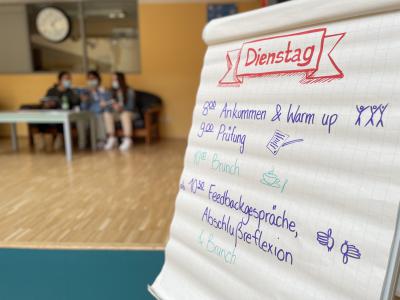 Dienstag
8⁰⁰ Ankommen & Warm up
9⁰⁰ Prüfung
Brunch
ab 10³⁰ Feedbackgespräche,
Abschlußreflexion
& Brunch